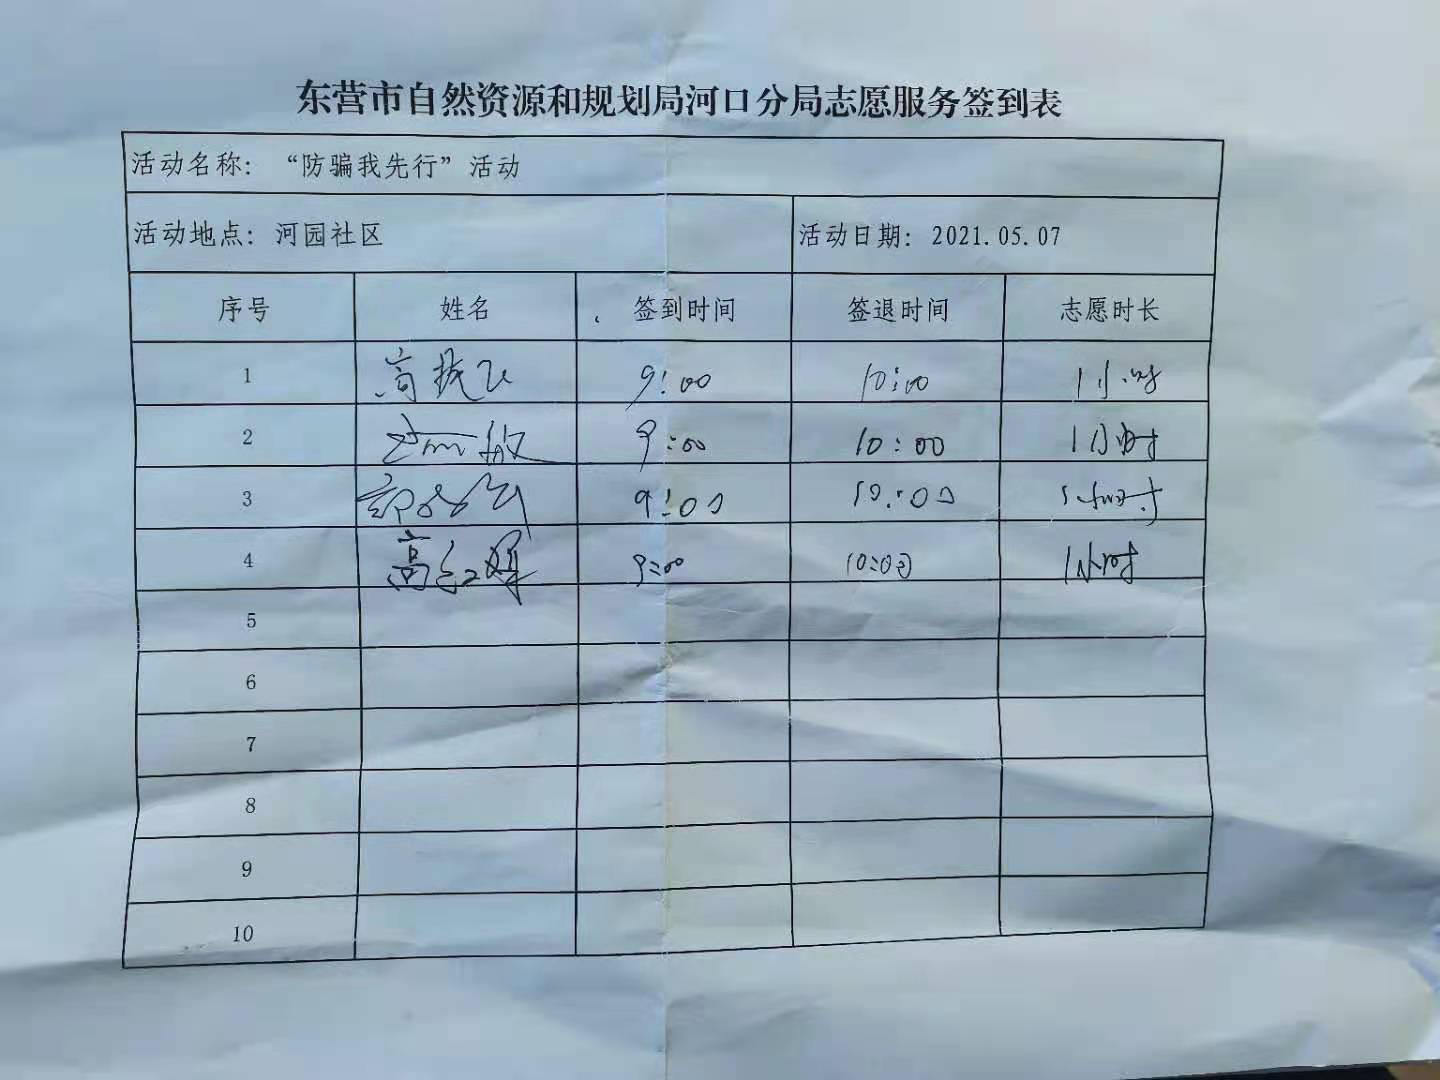 东营市自然资源和规划局河口分局志愿服务签到表
活动名称：“防骗我先行”活动
活动地点：河园社区 活动日期：2021.05.07
序号 姓名 签到时间 签退时间 志愿时长
1 高 9:00 10:00 1小时
2 9:00 10:00 1小时
3 9:00 10:00 1小时
4 高红 9:00 10:00 1小时
5
6
7
8
9
10